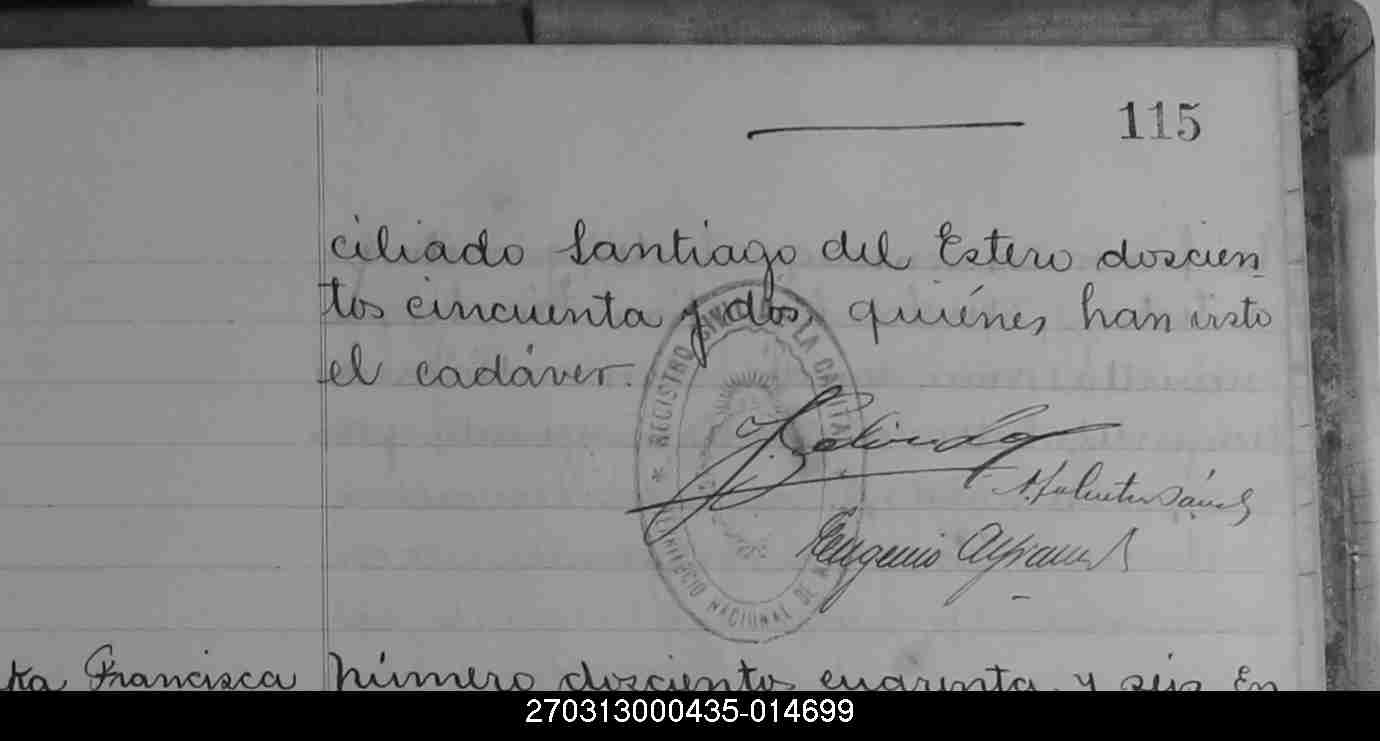 115
ciliado Santiago del Estero doscien
tos cincuenta y dos, quiénes han visto
el cadáver.
REGISTRO CIVIL LA CAPITAL
NACIONAL DE
Eugenio
Francisca
Número doscientos cuarenta y séis En
270313000435-014699